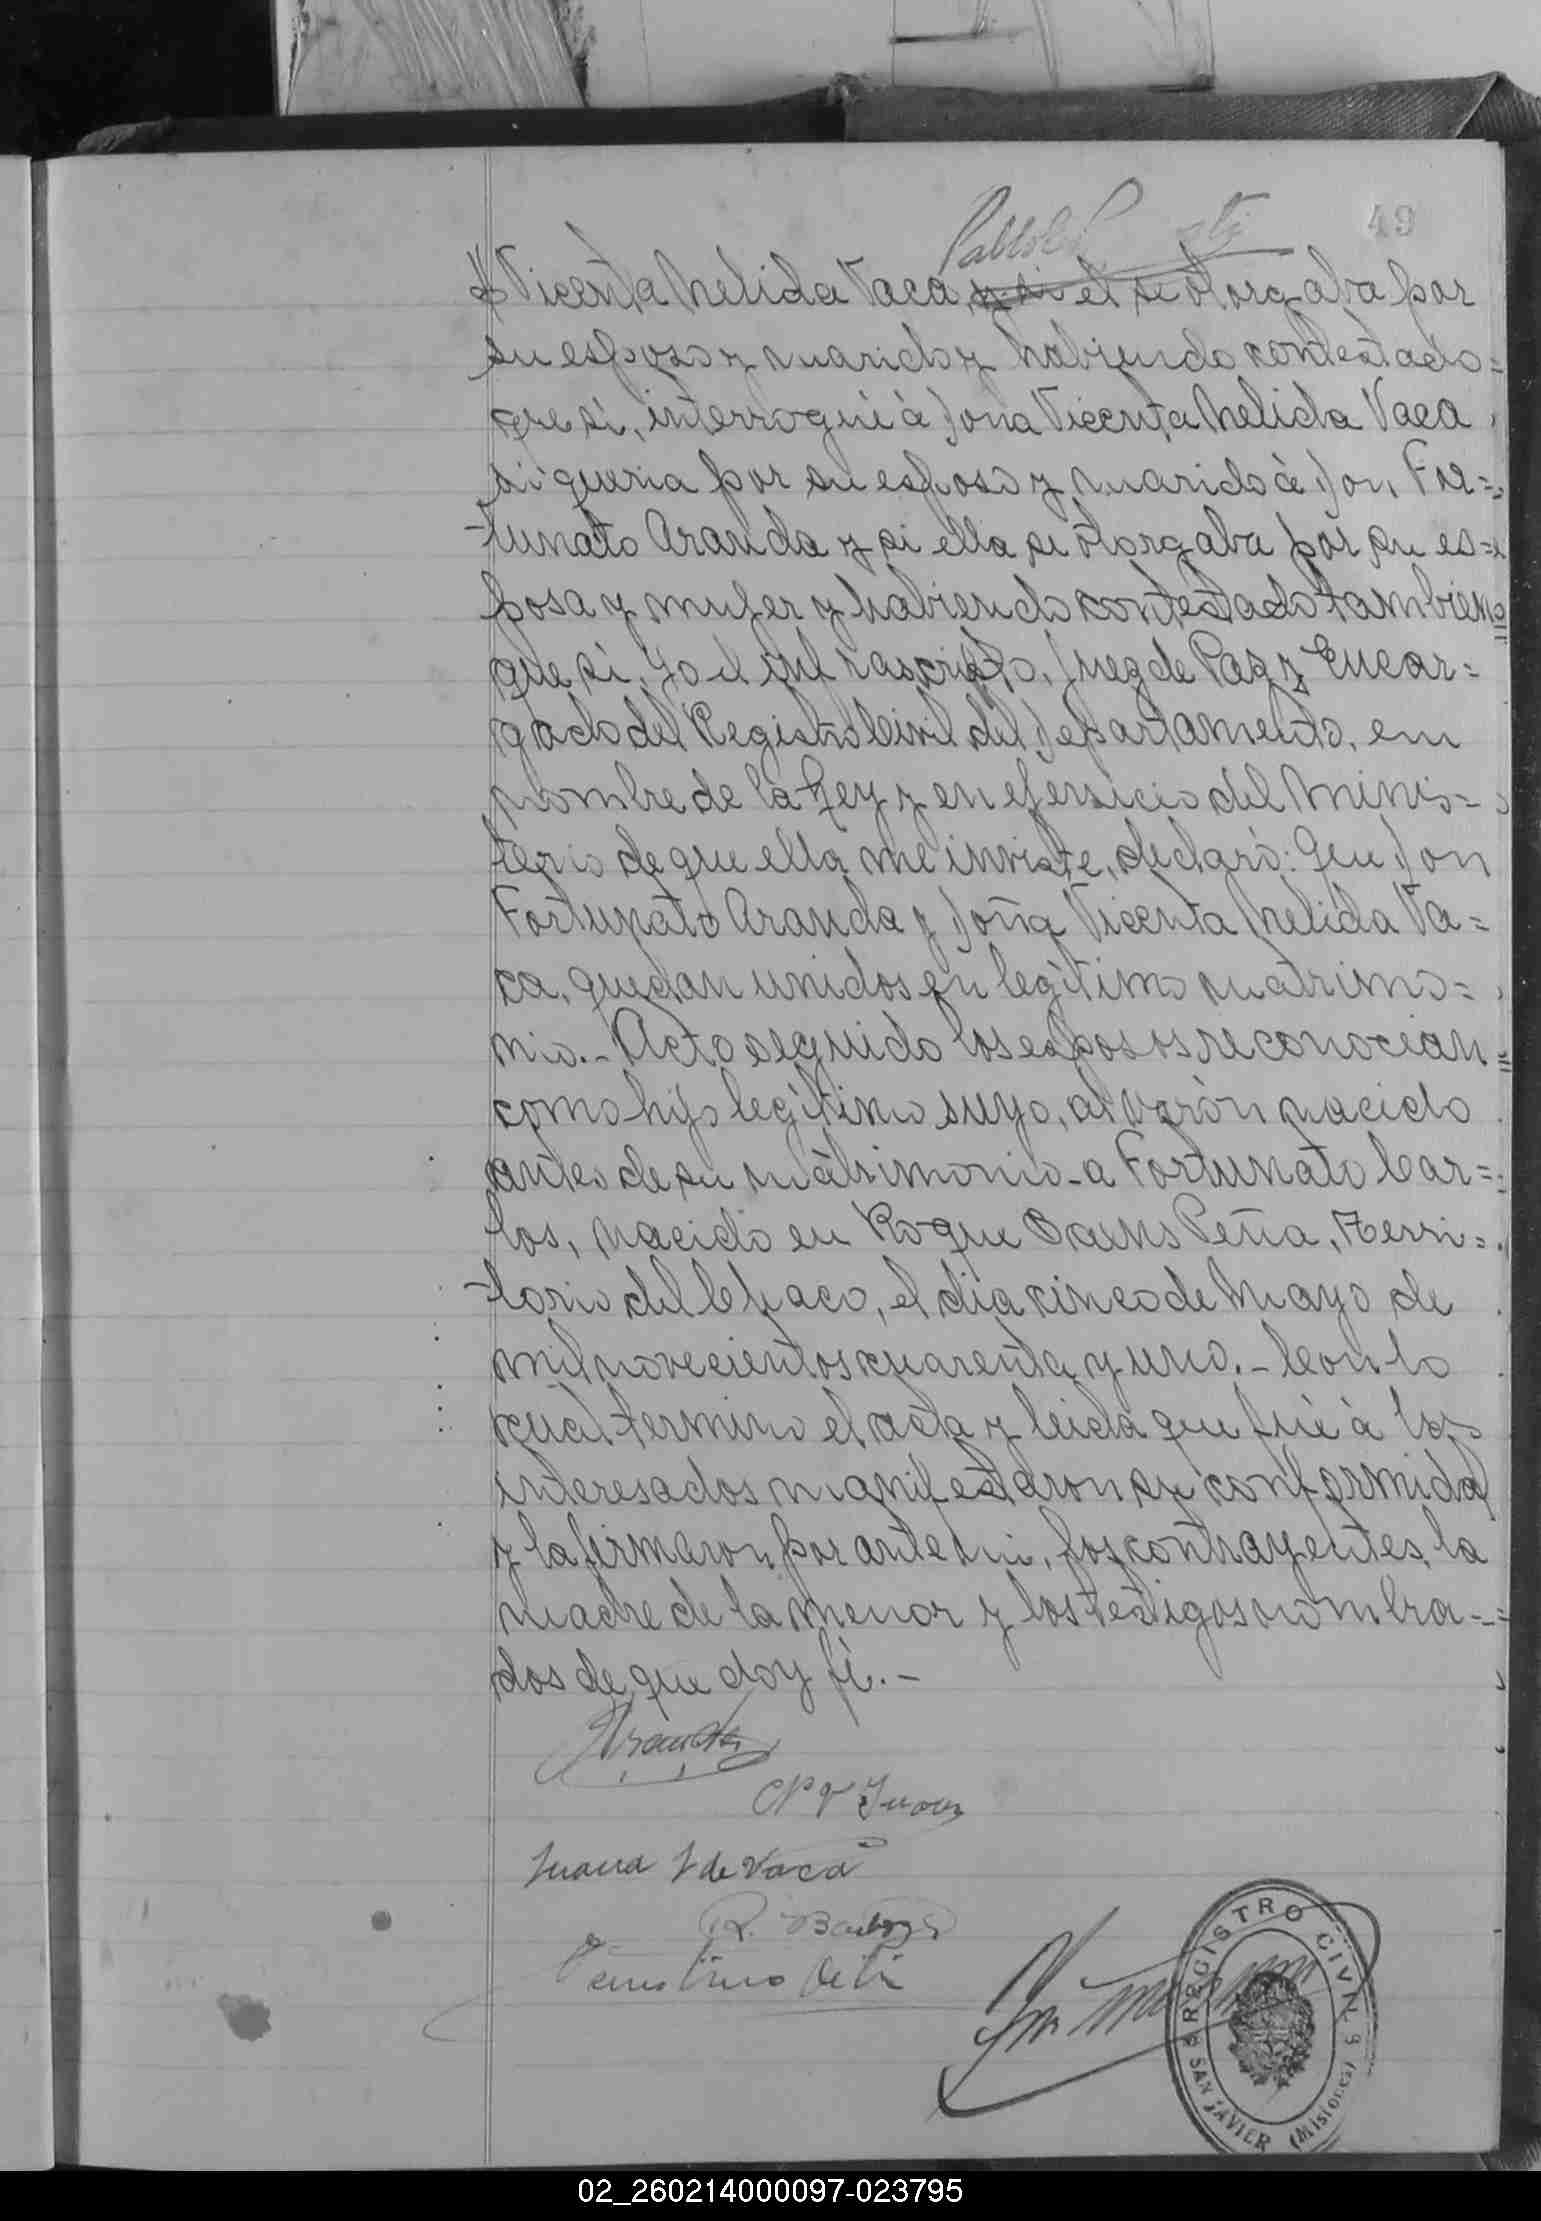 49
Vicenta Nelida Vaca y si el se otorgaba por
su esposo y marido y habiendo contestado =
que si, interrogué à Dona Vicenta Nelida Vaca
si queria por su esposo y marido à Don, For=
tunato Aranda y si ella se otorgaba por su es=
posa y mujer y habiendo contestado tambien
que si, Yo el infrascripto, Juez de Paz y Encar=
gado del Registro Civil del Departamento, en
nombre de la Ley y en ejersicio del Minis=
terio de que ella me inviste, declaró: Que Don
Fortunato Aranda y Doña Vicenta Nelida Va=
ca, quedan unidos en legítimo matrimo=
nio.- Acto seguido los esposos reconocian
como hijo legítimo suyo, al varón nacido
antes de su matrimonio - a Fortunato Car=
los, nacido en Roque Saens Peña, Terri=
torio del Chaco, el dia cinco de Mayo de
mil novecientos cuarenta y uno.- Con lo
cual termino el acta y leida que fué à los
interesados manifestaron su conformidad
y la firmaron, por ante mi, los contrayentes, la
madre de la menor y los testigos nombra=
dos de que doy fé.-
Aranda
Juana de Vaca
R.
REGISTRO CIVIL
SAN JAVIER (Misiones)
02_260214000097-023795